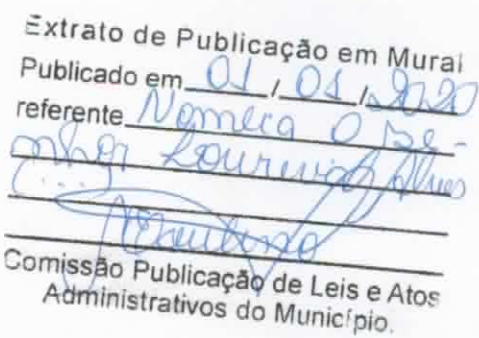 Extrato de Publicação em Mural
Publicado em 01 / 01 / 2020
referente Nomeia O Se-
nhor Alves
(...)
Comissão Publicação de Leis e Atos
Administrativos do Município.